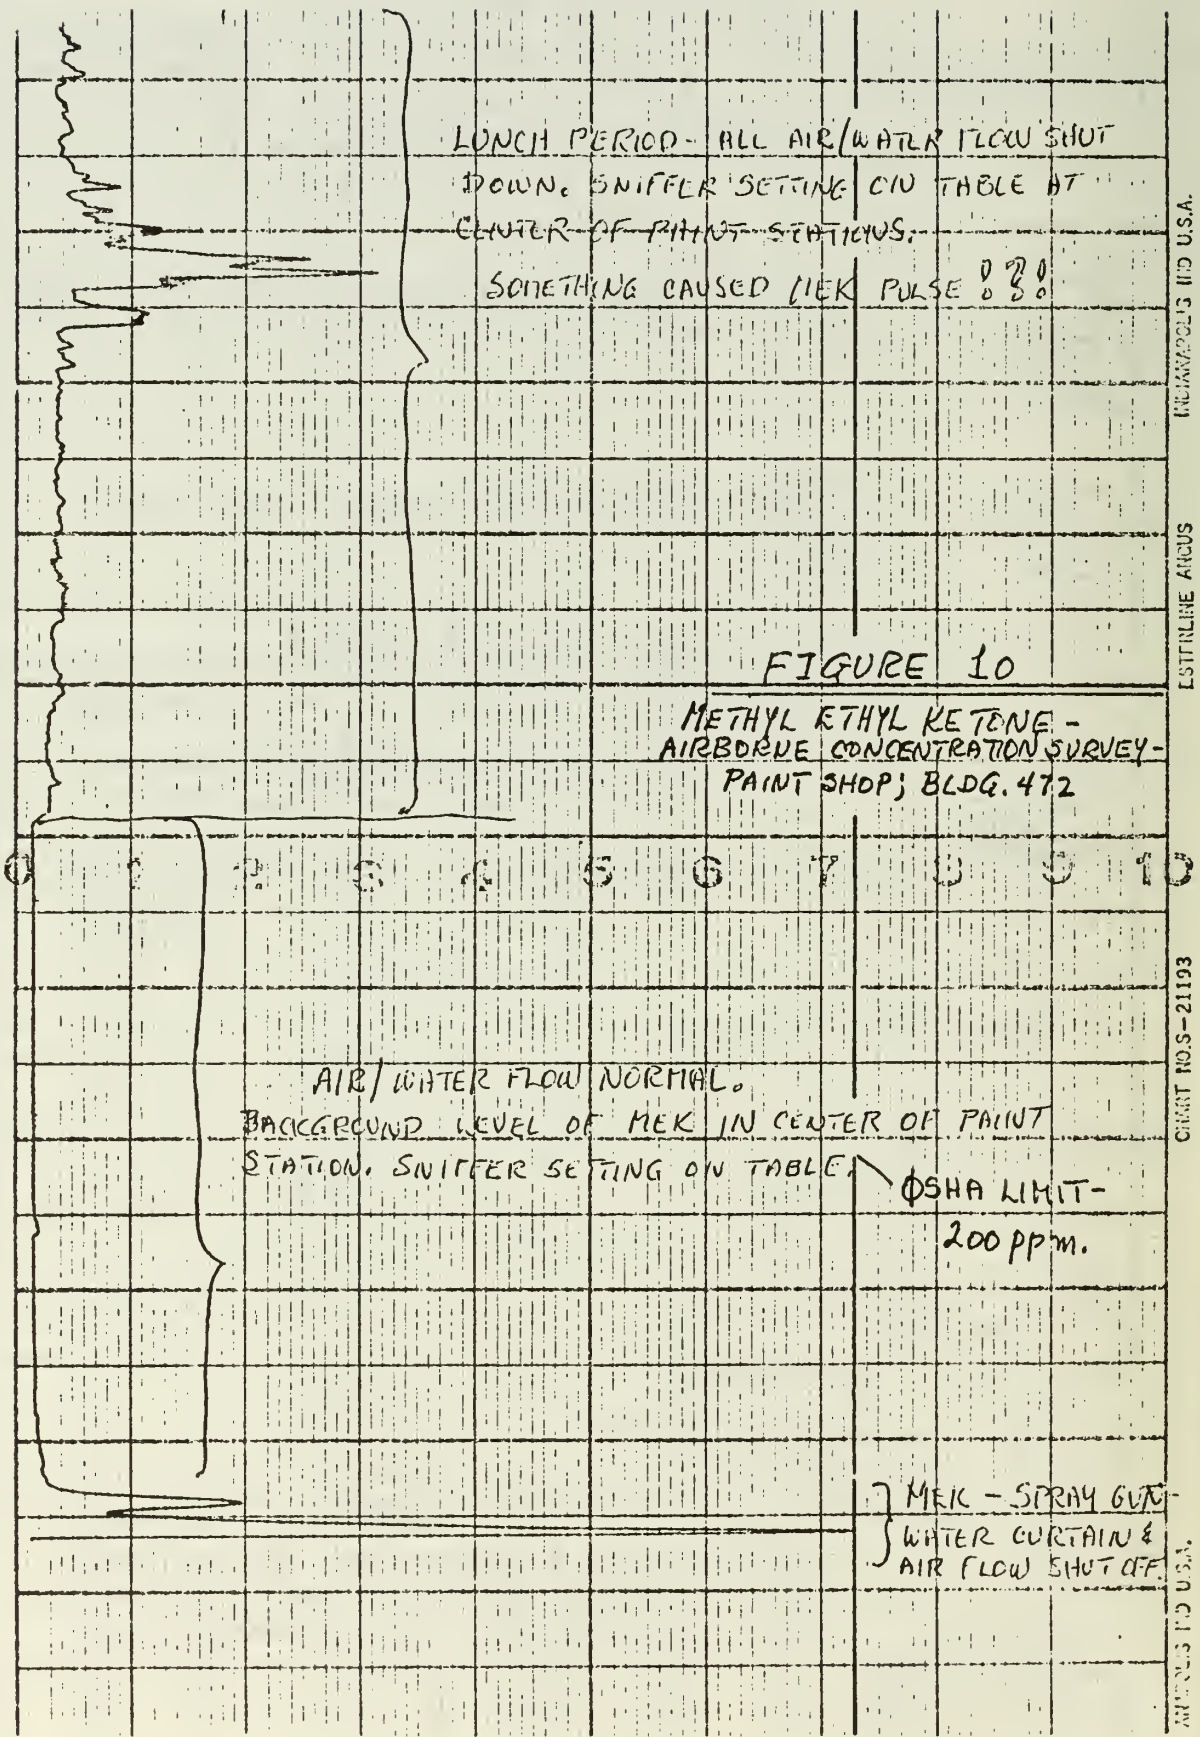 LUNCH PERIOD - ALL AIR/WATER FLOW SHUT
DOWN. SNIFFER SETTING ON TABLE AT
CENTER OF PAINT STATIONS.
SOMETHING CAUSED MEK PULSE !?!
FIGURE 10
METHYL ETHYL KETONE -
AIRBORNE CONCENTRATION SURVEY -
PAINT SHOP; BLDG. 472
0 1 2 3 4 5 6 7 8 9 10
AIR/WATER FLOW NORMAL.
BACKGROUND LEVEL OF MEK IN CENTER OF PAINT
STATION. SNIFFER SETTING ON TABLE.
OSHA LIMIT-
200 ppm.
MEK - SPRAY GUN -
WATER CURTAIN &
AIR FLOW SHUT OFF.
INDIANAPOLIS IND U.S.A.
ESTERLINE ANGUS
CHART NO.S-21193
IND U.S.A.